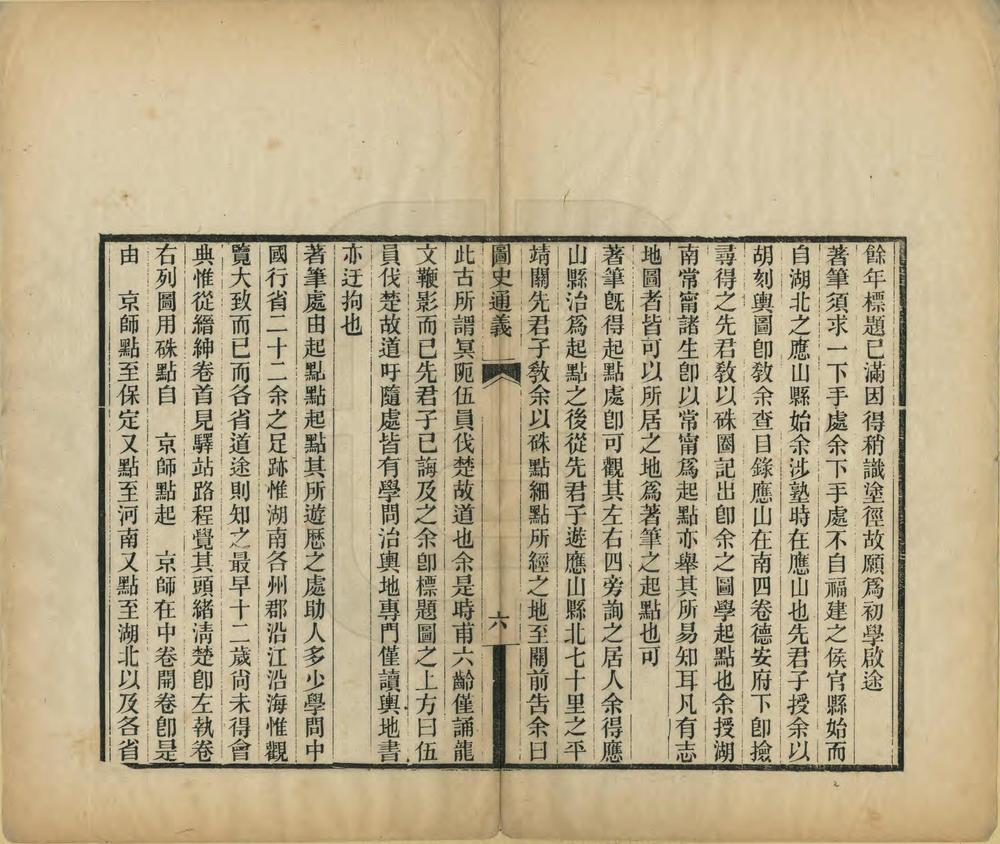 餘年標題已滿因得稍識塗徑故願爲初學啟途
著筆須求一下手處余下手處不自福建之侯官縣始而
自湖北之應山縣始余涉塾時在應山也先君子授余以
胡刻輿圖卽敎余查目錄應山在南四卷德安府下卽撿
尋得之先君敎以硃圈記出卽余之圖學起點也余授湖
南常甯諸生卽以常甯爲起點亦舉其所易知耳凡有志
地圖者皆可以所居之地爲著筆之起點也可
著筆旣得起點處卽可觀其左右四旁詢之居人余得應
山縣治爲起點之後從先君子遊應山縣北七十里之平
靖關先君子敎余以硃點細點所經之地至關前告余曰
圖史通義 六
此古所謂冥阨伍員伐楚故道也余是時甫六齡僅誦龍
文鞭影而已先君子已誨及之余卽標題圖之上方曰伍
員伐楚故道吁隨處皆有學問治輿地專門僅讀輿地書
亦迂拘也
著筆處由起點點起點其所遊歷之處助人多少學問中
國行省二十二余之足跡惟湖南各州郡沿江沿海惟觀
覽大致而已而各省道途則知之最早十二歲尙未得會
典惟從縉紳卷首見驛站路程覺其頭緒淸楚卽左執卷
右列圖用硃點自 京師點起 京師在中卷開卷卽是
由 京師點至保定又點至河南又點至湖北以及各省